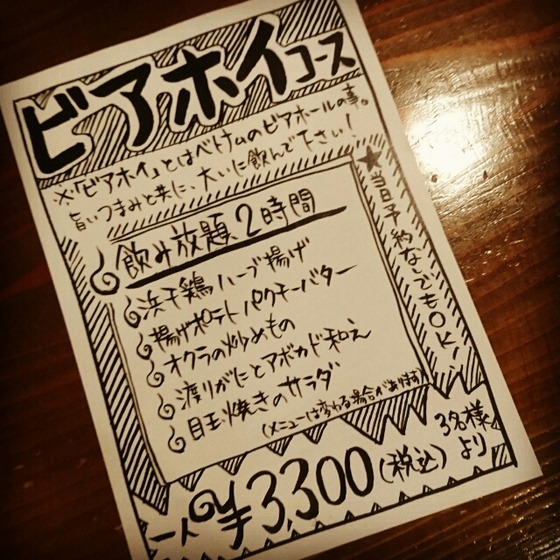 ビアホイコース
※「ビアホイ」とはベトナムのビアホールの事。
旨いつまみと共に、大いに飲んで下さい!
★当日予約なしでもOK!
飲み放題2時間
浜千鶏ハーブ揚げ
揚げポテトパクチーバター
オクラの炒めもの
渡りがにとアボカド和え
目玉焼きのサラダ
(メニューは変わる場合があります)
一人¥3,300(税込)3名様より